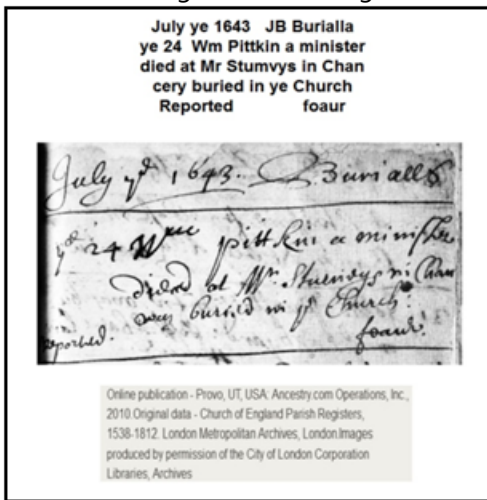 July ye 1643   JB Burialla
ye 24  Wm Pittkin a minister
died at Mr Stumvys in Chan
cery buried in ye Church
Reported          foaur
July yͤ 1643. Burialls
yͤ 24 Wm pittkin a minister
died at Mr. in Chan
cery buried in yͤ Church.
reported.
Online publication - Provo, UT, USA: Ancestry.com Operations, Inc.,
2010.Original data - Church of England Parish Registers,
1538-1812. London Metropolitan Archives, London.Images
produced by permission of the City of London Corporation
Libraries, Archives